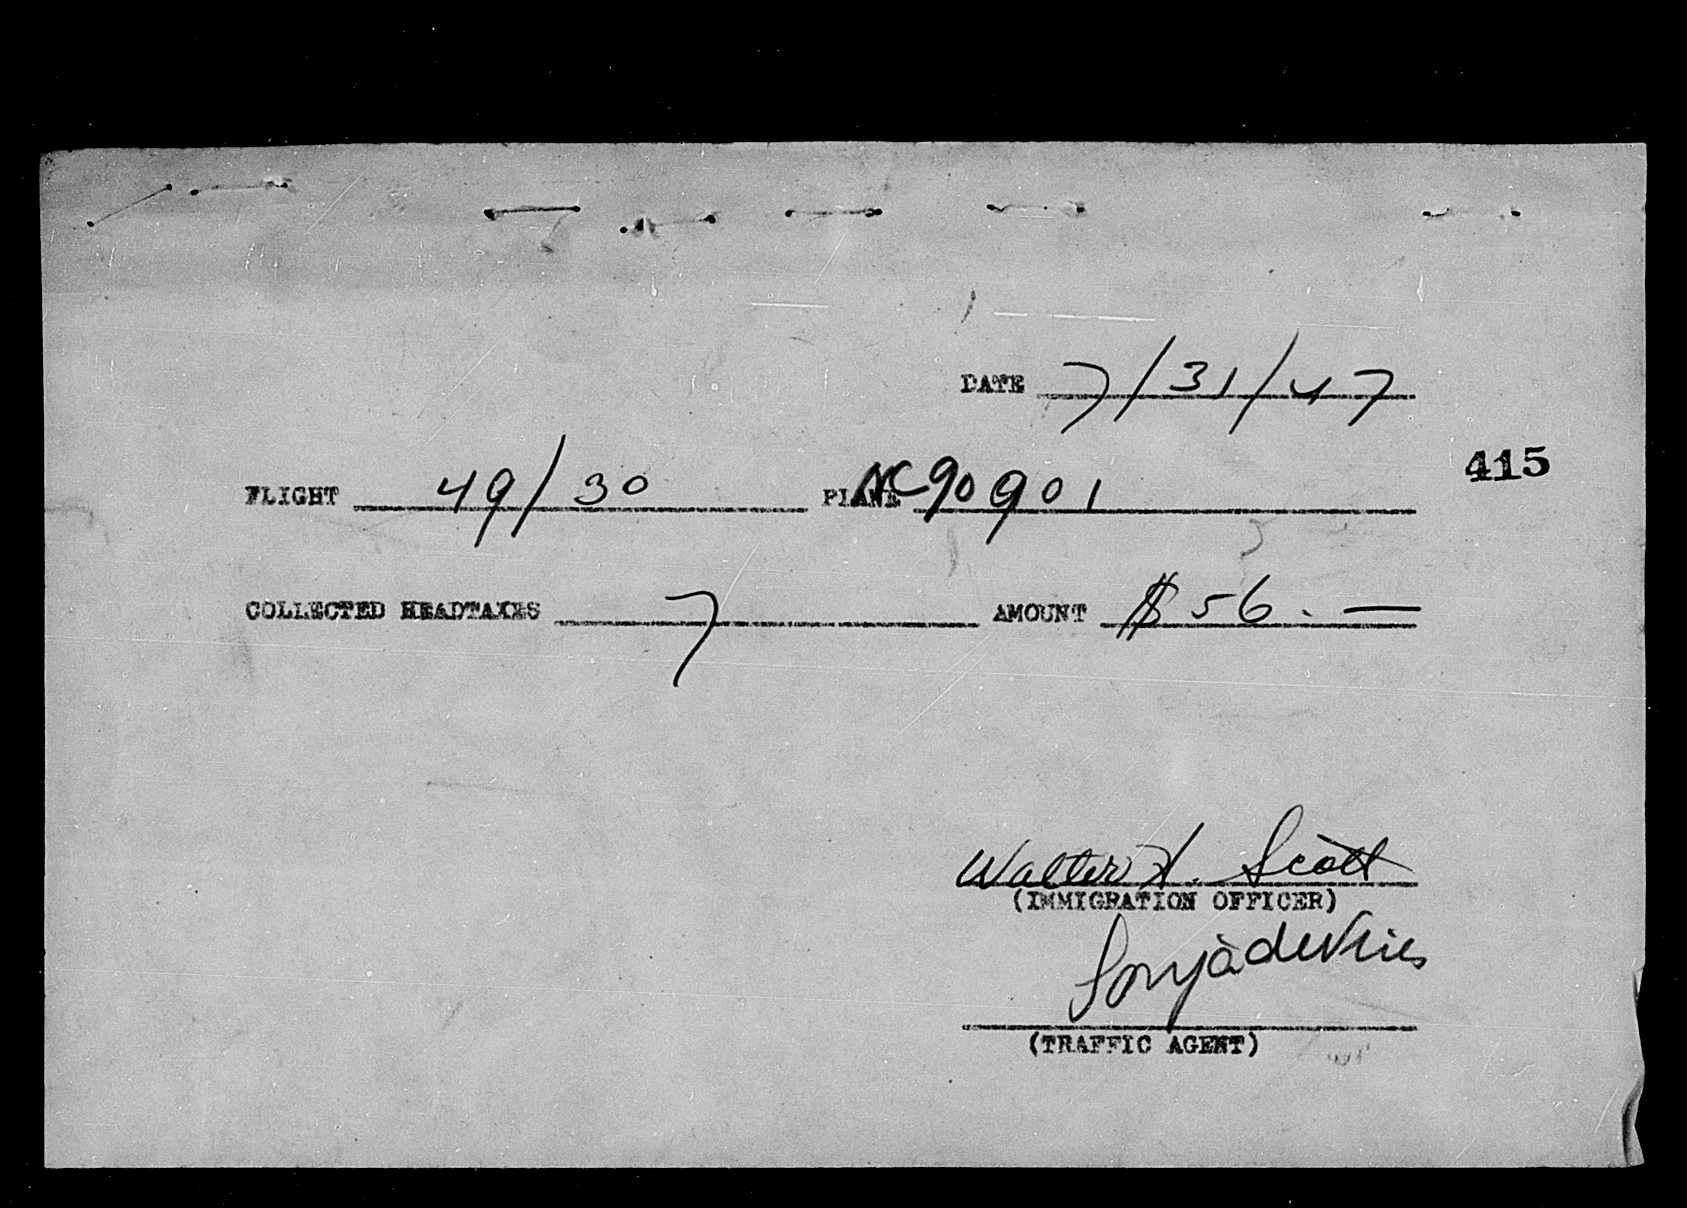 DATE 7/31/47
415
FLIGHT 49/30 PLANE NC90901
COLLECTED HEADTAXES 7 AMOUNT $56.—
Walter H. Scott
(IMMIGRATION OFFICER)
Sonja deVries
(TRAFFIC AGENT)